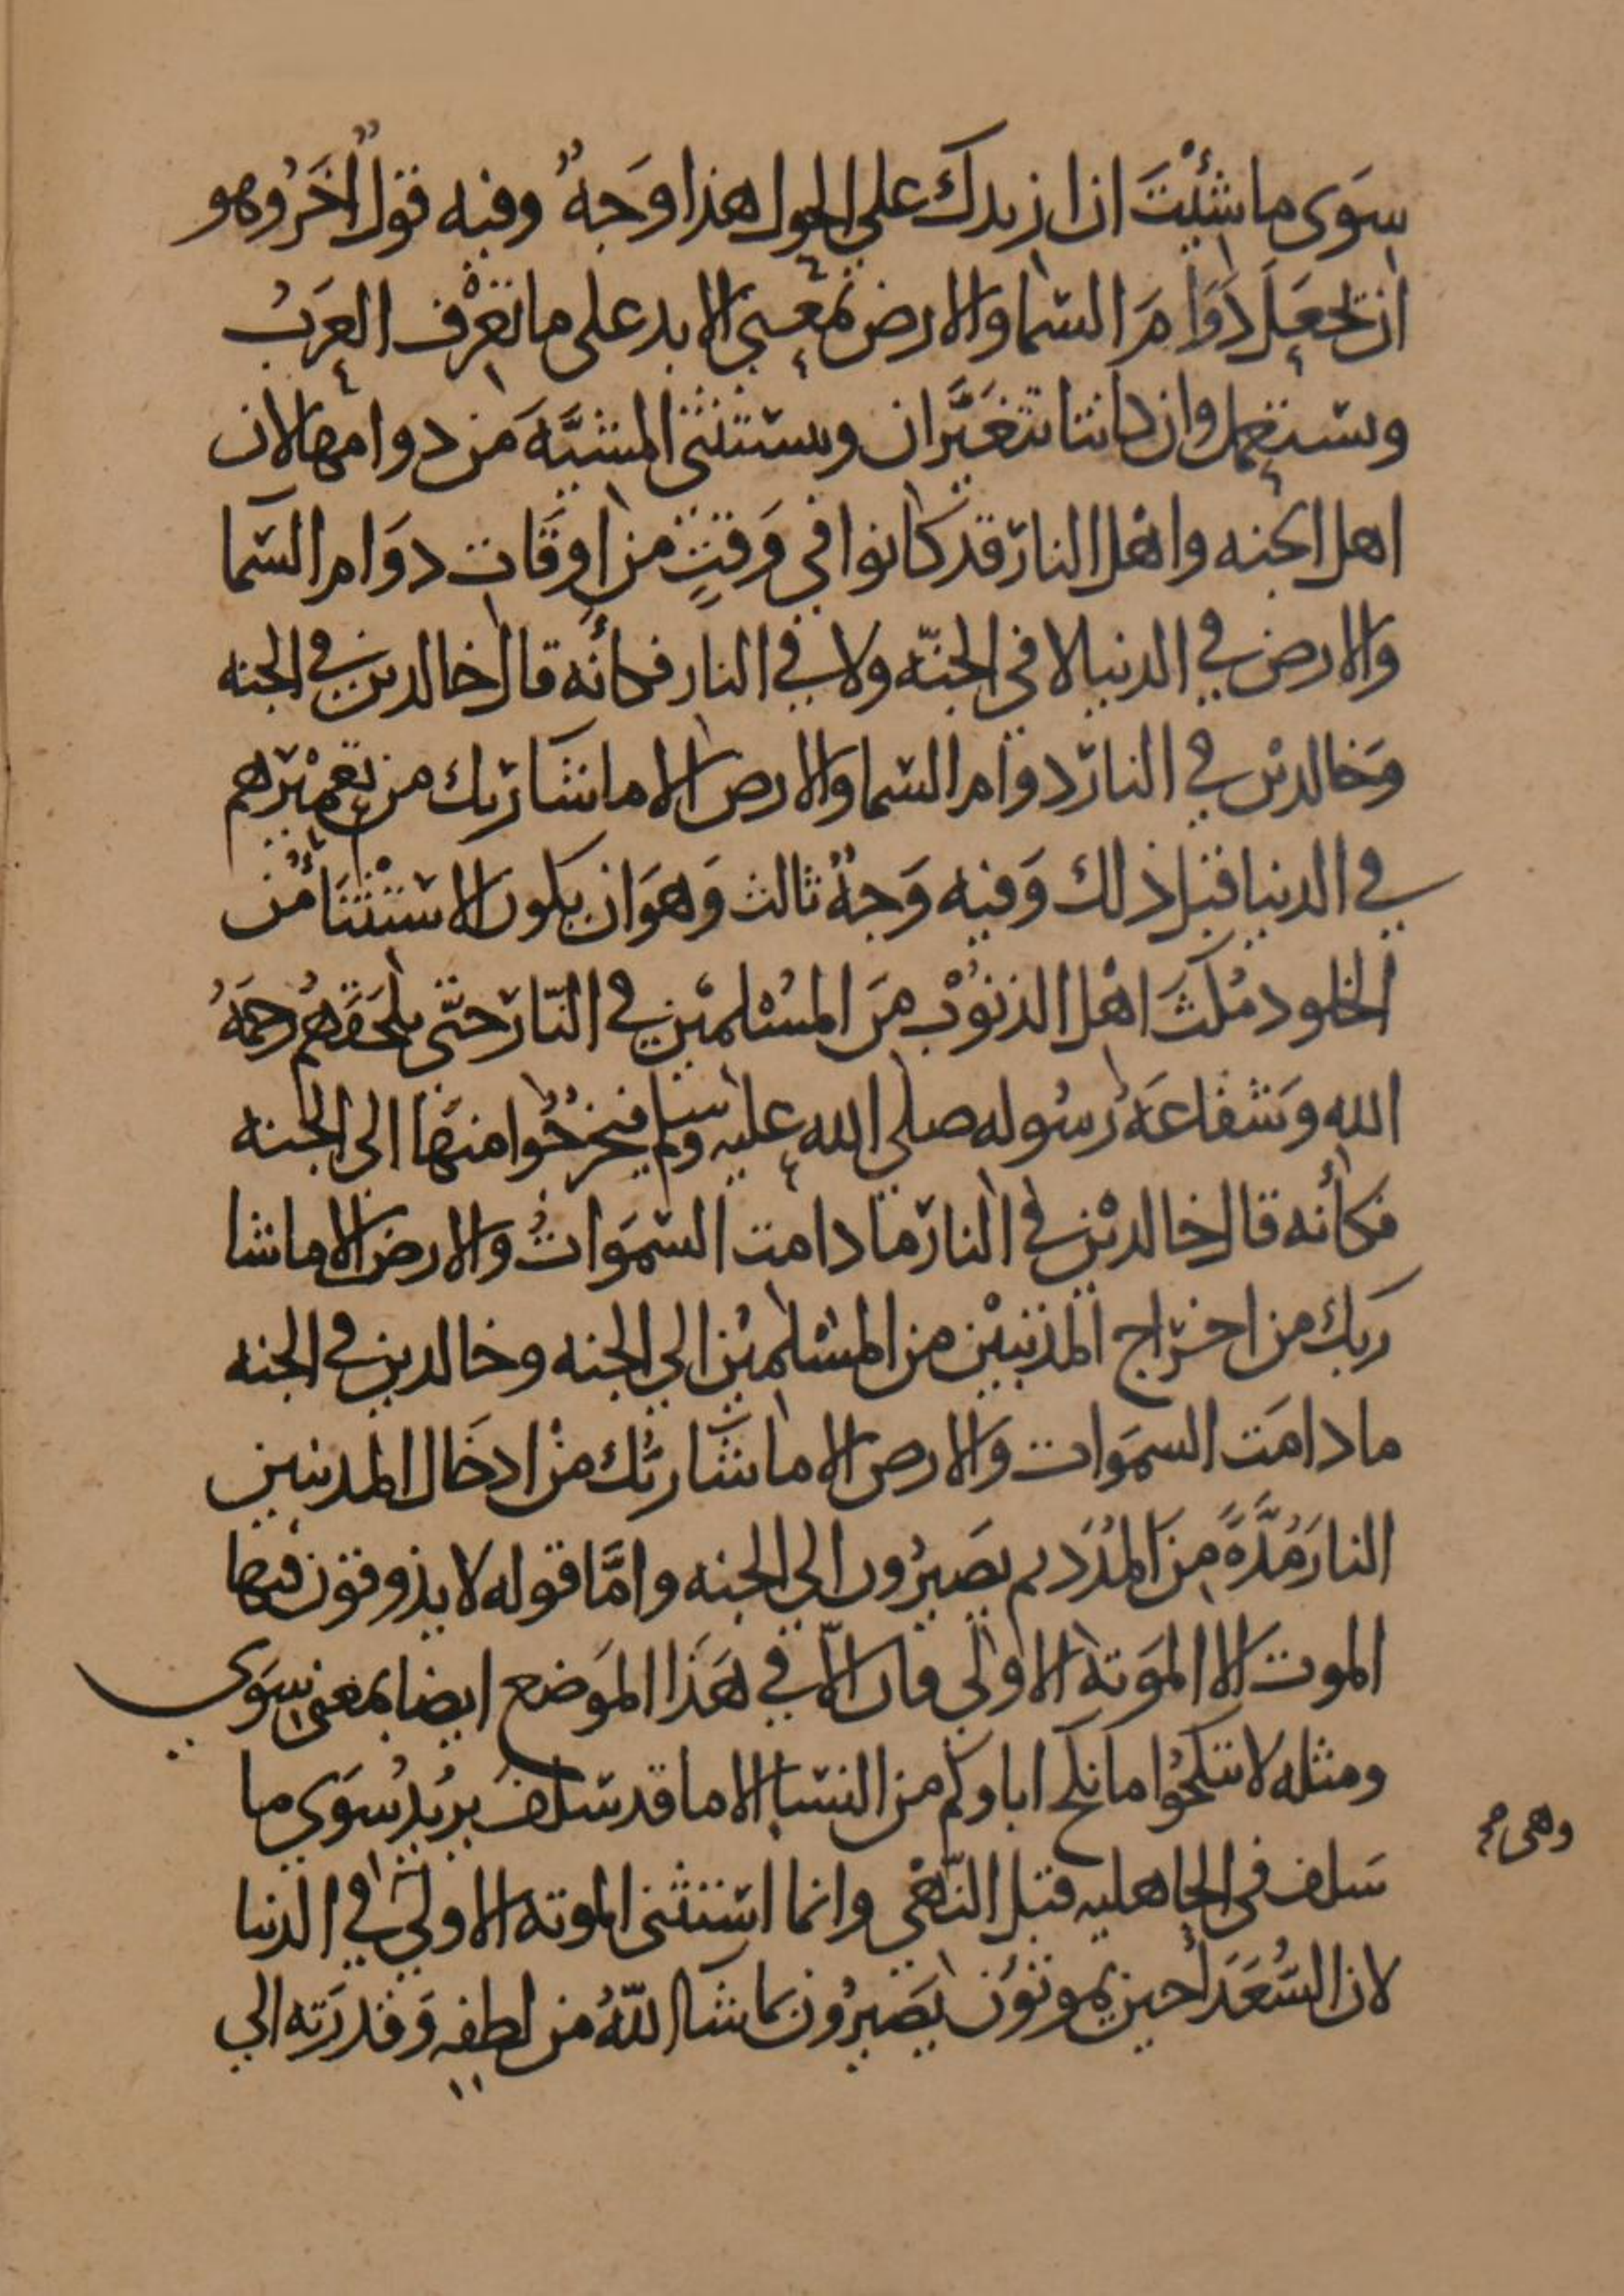 سِوَى ما شئْتَ ان ازيدك على الحول هذا وَجهٌ وفيه قولٌ اخَرُ وهو
ان تجعَل دَوَامَ السّما والارض بمعنى الابد على ما تعْرف العَربُ
وتستعمل وان كانتا تتغيَّران وتستثنى المشيَّهَ من دوامها لان
اهل الجنه واهْل النار قد كانوا في وَقتٍ من اوقَات دوَام السّما
والارض في الدنيا لا في الجنّه ولا في النار فكأنه قال خالدين في الجنه
وَخالدين في النار دوام السّما والارض الا ما شا ربك من تعميْرهم
في الدنيا قبل ذلك وَفيه وَجهٌ ثالث وَهوَ ان يكون الاستثْنَاءُ من
الخلود مُكثَ اهْل الذنوْب مَن المسُلميْن في النّار حتّى تلحَقَهُم رَحمَةُ
الله وَشفاعَةُ رسُوله صلى الله عليه وسلم فيخرُجُوا منهَا الى الجنه
فكأنه قال خالديْن في النار ما دامت السّموَاتُ والارض الا ما شا
ربك من اخراج المذنبيْن من المسْلميْن الي الجنه وخالدين في الجنه
ما دامَت السموَات وَالارض الا ما شَا ربُّك منْ ادخَال المذنبين
النارَ مُدَّةً مِنَ المُدَد ثم يَصيرُون الي الجنه وامَّا قوله لا يذوقون فيها
الموت الا الموَتة الاولى فان الّا في هَذا الموَضع ايضا بمعنى سِوَي
ومثله لا تنكحُوا ما نكح اباوكم من النسا الا ما قد سَلف يريدُ سوَي ما
سَلف في الجاهليه قبل النّهْي وانما استثنى الموته الاولي في الدنيا
وهى
لان السُّعَدَأ حين يموتوُن يَصَيرُون بما شا اللّهُ من لطفه وَقدرَته الي